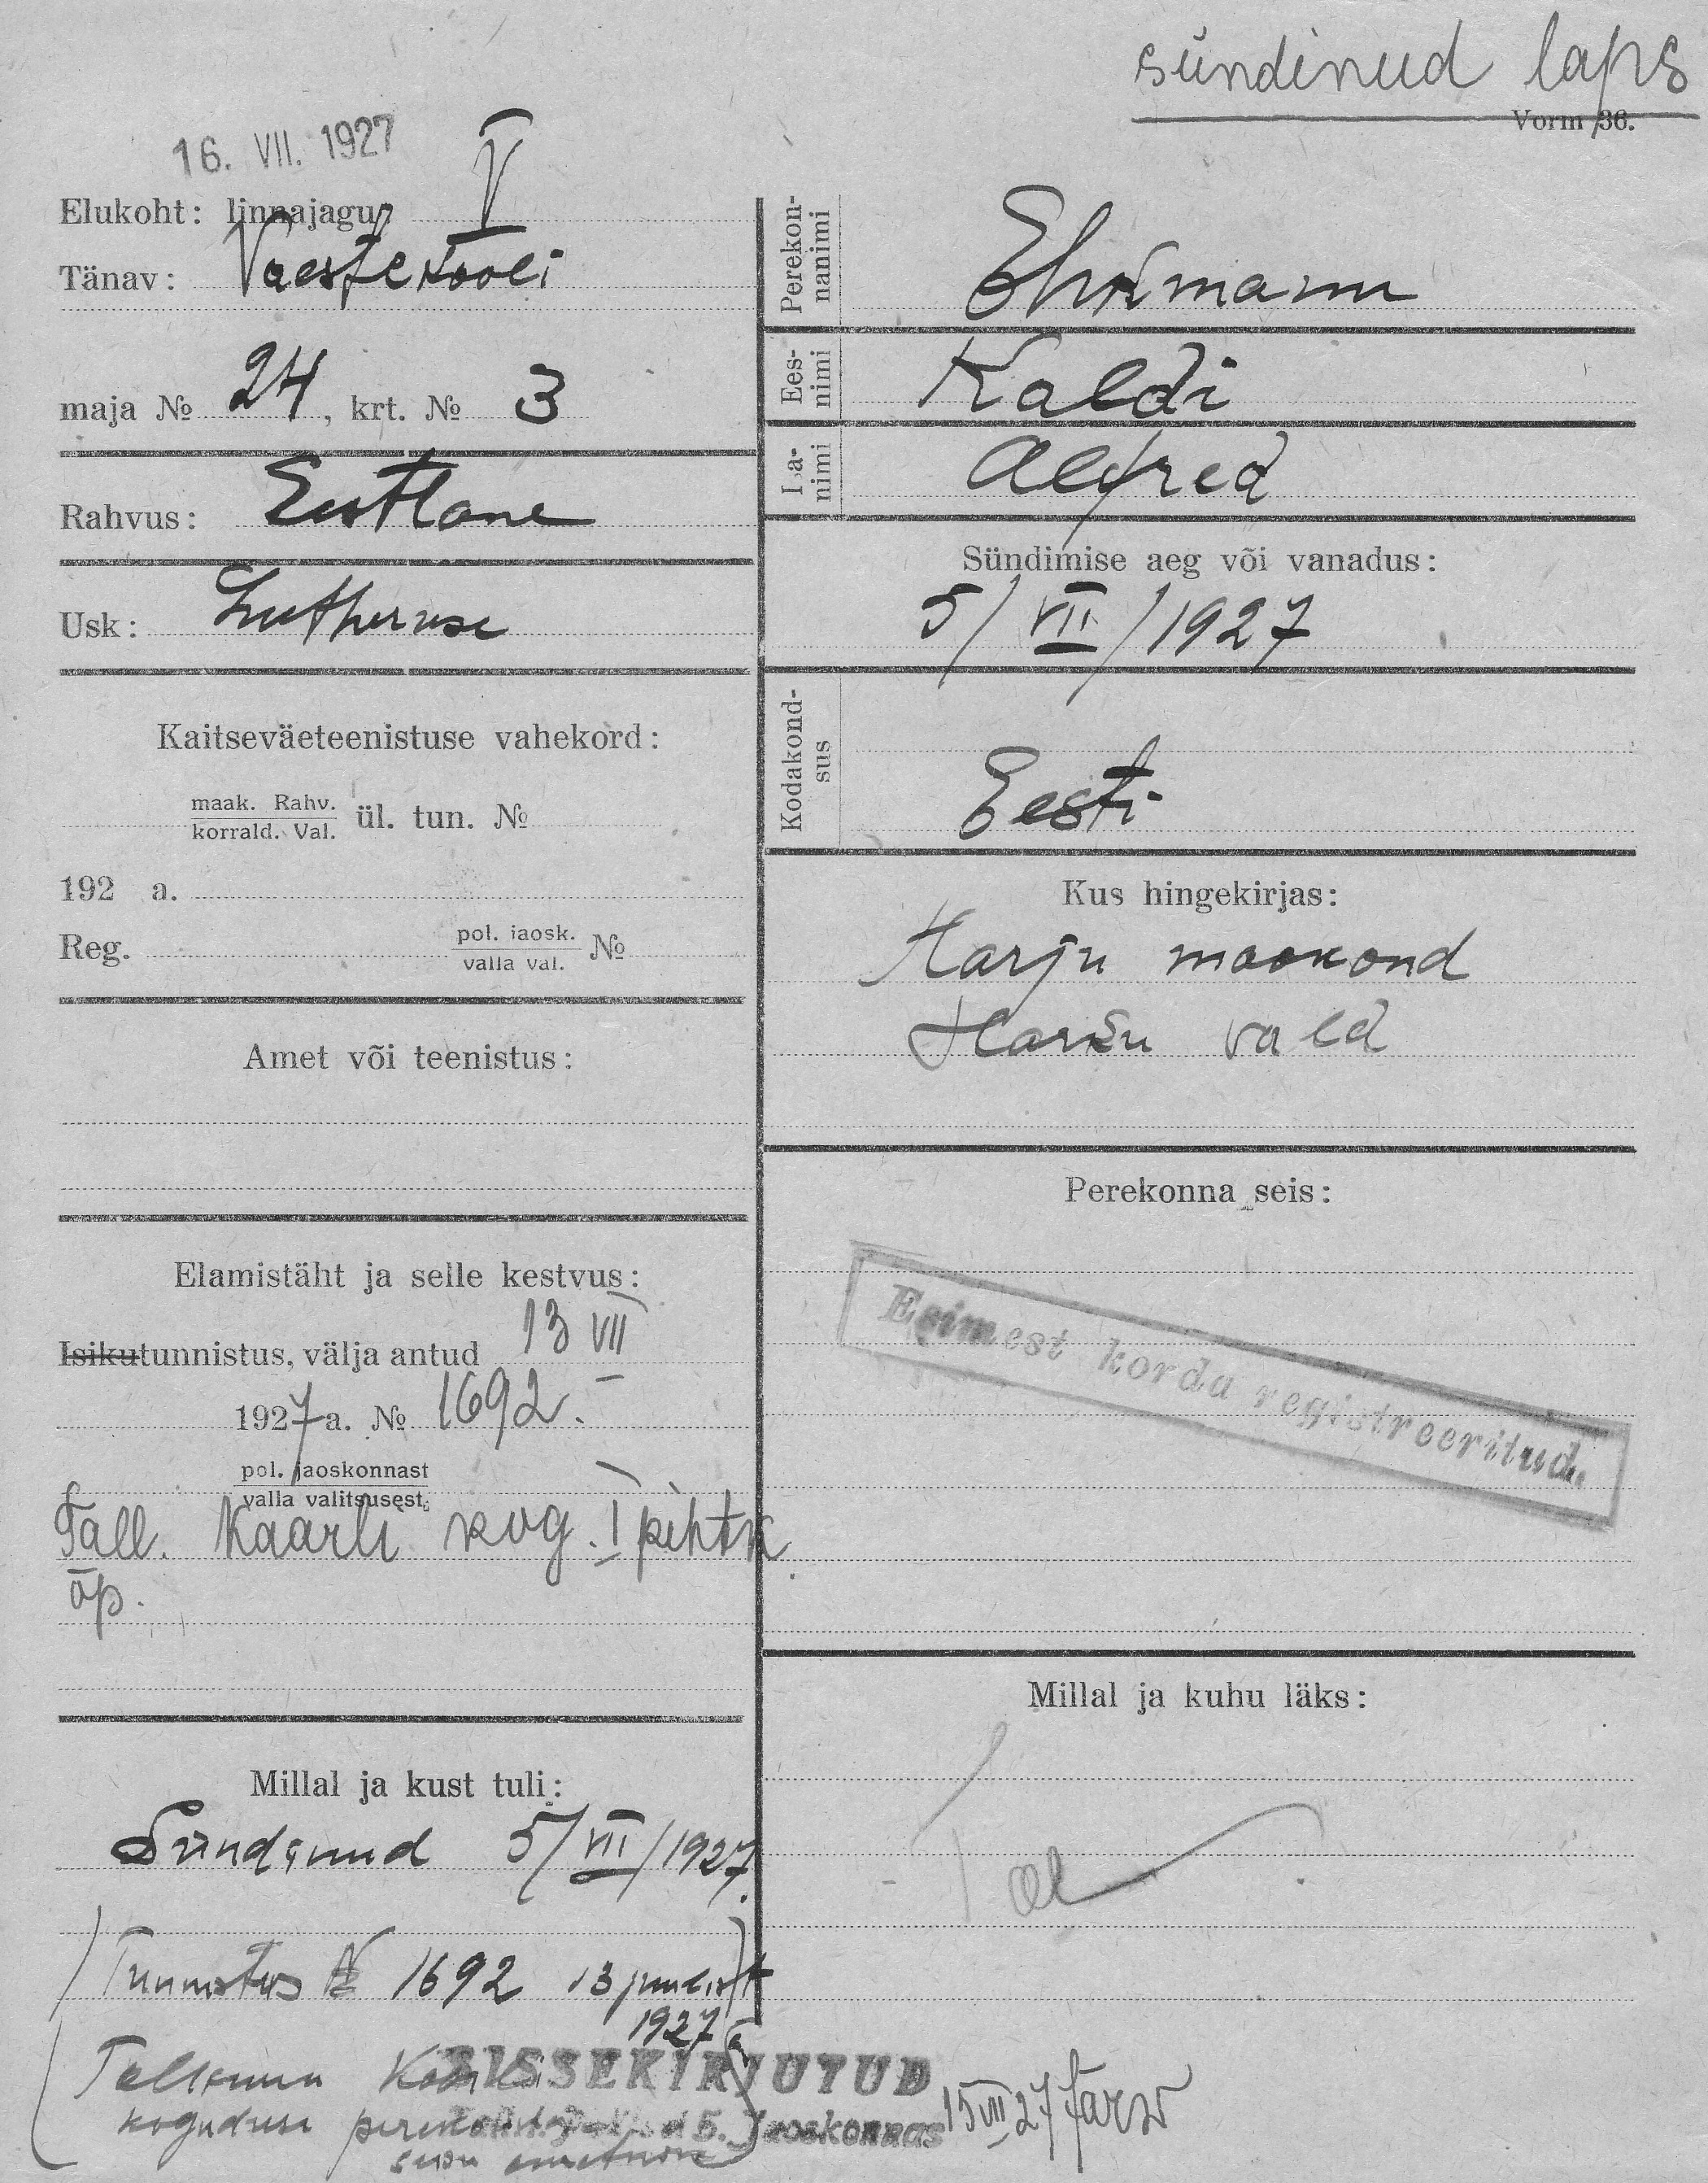 sündinud laps
Vorm 36.
16. VII. 1927
Elukoht: linnajagu V
Tänav: Vaestekooli
maja № 24, krt. № 3
Rahvus: Eestlane
Usk: Lutheruse
Kaitseväeteenistuse vahekord:
maak. Rahv.
korrald. Val. ül. tun. №
192 a.
Reg. pol. jaosk.
valla val. №
Amet või teenistus:
Elamistäht ja selle kestvus:
Isikutunnistus, välja antud 13 VII
1927 a. № 1692.
pol. jaoskonnast
valla valitsusest.
Tall. Kaarli kog. I pihtk.
õp.
Millal ja kust tuli:
Sündinud 5/VII/1927.
(Tunnistus № 1692 13 juulist
1927
Tallinna Kaarli
koguduse
Perekon-
nanimi
Ehrmann
Ees-
nimi
Kaldi
Isa-
nimi
Alfred
Sündimise aeg või vanadus:
5/VII/1927
Kodakond-
sus
Eesti
Kus hingekirjas:
Harju maakond
Harku vald
Perekonna seis:
Esimest korda registreeritud.
Millal ja kuhu läks:
SISSEKIRJUTUD
5. Jaoskonnas 15 VII 27